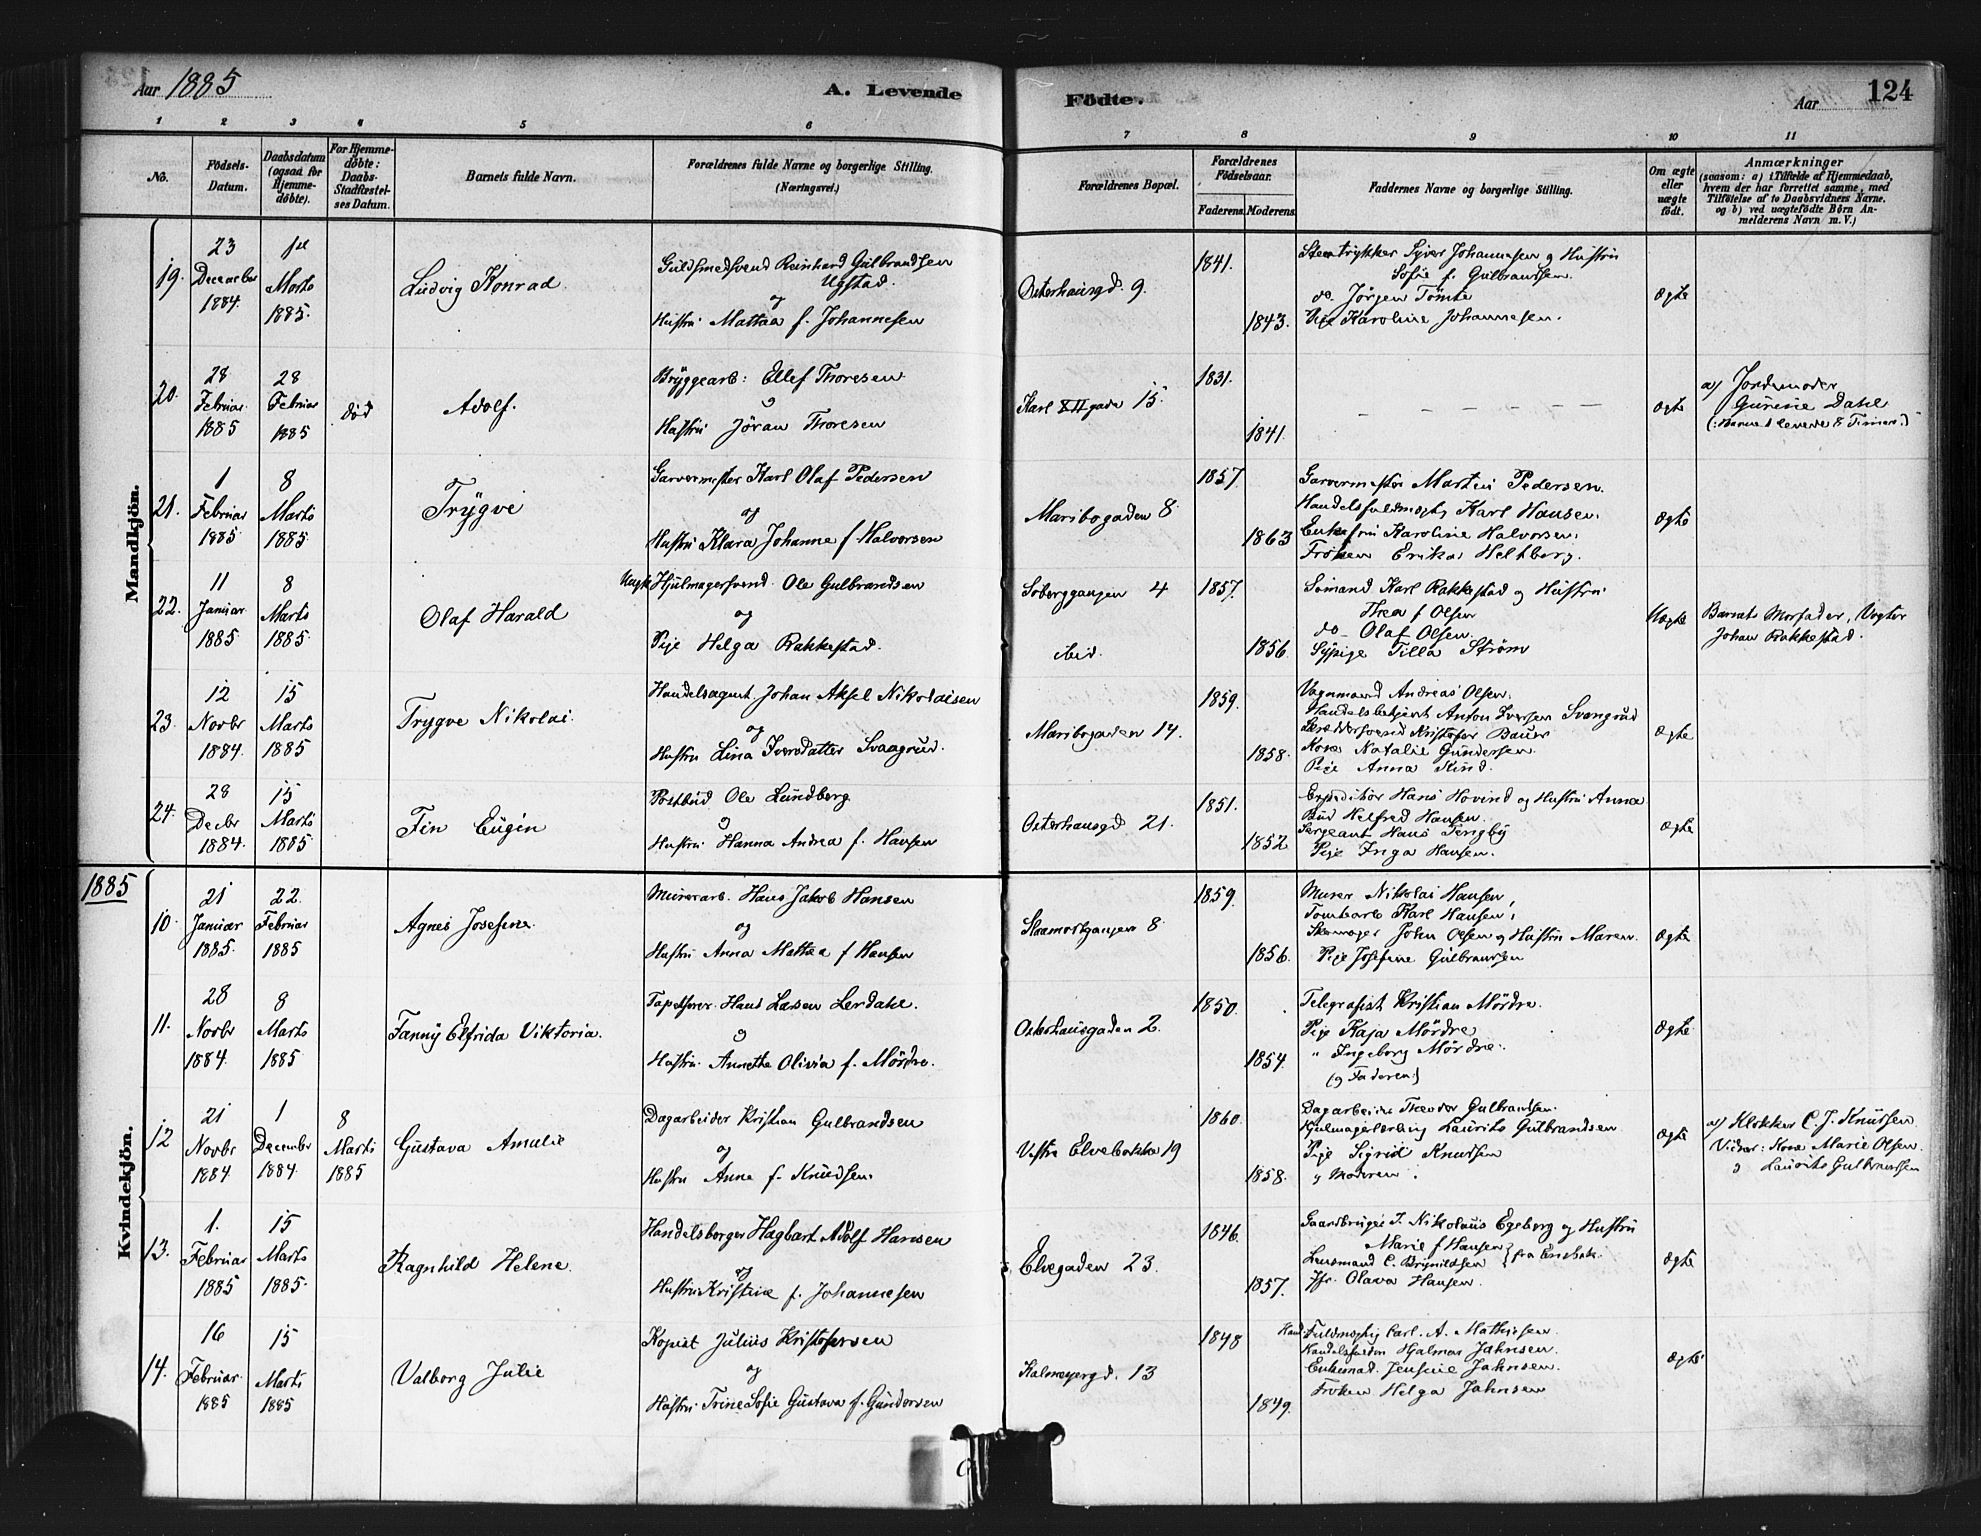 Aar 1885
A. Levende
Födte.
Aar
124
1 2 3 4 5 6 7 8 9 10 11
No.
Födsels-Datum.
Daabsdatum (ogsaa for Hjemme-døbte).
For Hjemme-døbte: Daabs-Stadfæstel-ses Datum.
Barnets fulde Navn.
Forældrenes fulde Navne og borgerlige Stilling. (Næringsvei.)
Forældrenes Bopæl.
Forældrenes Födselsaar.
Faderens. Moderens.
Faddernes Navne og borgerlige Stilling.
Om ægte eller uægte født.
Anmærkninger
(saasom: a) i Tilfælde af Hjemmedaab, hvem der har forrettet samme, med Tilföielse af to Daabsvidners Navne. og b) ved uægtefödte Börn An-melderens Navn m. V.)
Mandkjön.
19.
23 December 1884.
1ste Marts 1885.
Ludvig Konrad.
Guldsmedsvend Reinhard Gulbrandsen Ugstad.
og
Hustru Mattea f. Johannesen
Osterhausgd. 9.
1841.
1843.
Stentrykker Syver Johannesen og Hustru
Sofie f. Gulbrandsen.
do. Jörgen Tömte
Pige Karoline Johannesen.
Ægte
20.
28 Februar 1885
28 Februar 1885
død
Adolf.
Bryggearb: Ellef Thoresen
og
Hustru Jöran Thoresen
Karl XII gade 15.
1831.
1841.
– – – – – –
Ægte
a/ Jordemoder
Gurine Dahl
(: Barnet levede 8 Timer:)
21.
1 Februar 1885.
8 Marts 1885.
Trygve
Garvermester Karl Olaf Pedersen
og
Hustru Klara Johanne f. Halvorsen
Maribogaden 8.
1857.
1863
Garvermester Martin Pedersen.
Handelsfuldmegtig Karl Hansen.
Enkefru Karoline Halvorsen.
Fröken Erika Heltberg.
Ægte
22.
11 Januar 1885
8 Marts 1885.
Olaf Harald
Ungk. Hjulmagersvend Ole Gulbrandsen
og
Pige Helga Rakkestad.
Soberggangen 4
ibid.
1857.
1856.
Sömand Karl Rakkestad og Hustru
Thea f Olsen
do– Olaf Olsen.
Sypige Tilla Ström
Uægte
Barnets Morfader, Vogter
Johan Rakkestad.
23.
12 Novbr 1884.
15 Marts 1885
Trygve Nikolai.
Handelsagent Johan Aksel Nikolaisen
og
Hustru Lina Iversdatter Svaagrud.
Maribogaden 14.
1859.
1858.
Vognmand Andreas Olsen.
Handelsbetjent Anton Iversen Svengrud
Skræddersvend Kristofer Bauer
Kone Natalie Gundersen
Pige Anna Kind.
Ægte
24.
28 Decbr 1884.
15 Marts 1885
Fin Eugèn
Postbud Ole Lundberg.
og
Hustru Hanna Andrea f. Hansen
Osterhausgd 21.
1851.
1852
Expeditör Hans Hovind og Hustru Anna
Bud Helfred Hansen.
Sergeant Hans Tengby
Pige Inga Hansen.
Ægte
1885
Kvindekjön.
10.
21 Januar 1885.
22. Februar 1885
Agnes Josefine.
Murerarb. Hans Jakob Hansen
og
Hustru Anna Mattea f Hansen
Staamostgangen 8
1859.
1856.
Murer Nikolai Hansen,
Tomtearb Karl Hansen,
Skomager John Olsen og Hustru Maren.
Pige Josefine Gulbrandsen
Ægte
11.
28 Novbr 1884.
8 Marts 1885
Fanny Elfrida Viktoria.
Tapetserer Hans Larsen Lerdahl.
og
Hustru Annethe Olivia f. Mördre.
Osterhausgaden 2.
1850.
1854.
Telegrafist Kristian Mördre.
Pige Kaja Mördre
" Ingeborg Mördre.
(og Faderen:)
Ægte
12
21 Novbr 1884
1 December 1884.
8 Marts 1885
Gustava Amalie
Dagarbeider Kristian Gulbrandsen
og
Hustru Anne f. Knudsen.
Vestre Elvebakke 19
1860.
1858.
Dagarbeider Theodor Gulbrandsen.
Hjulmagerlærling Laurits Gulbrandsen
Pige Sigrid Knudsen
og Moderen.
Ægte
a/ Klokker C. J. Knudsen
Vidner: Kone Marie Olsen
og Laurits Gulbrandsen
13.
1. Februar 1885
15 Marts 1885.
Ragnhild Helene.
Handelsborger Hagbart Adolf Hansen
og
Hustru Kristine f. Johannesen
Elvegaden 23.
1846.
1857.
Gaardbruger J. Nikolaus Egeberg og Hustru
Marie f Hansen
Lensmand C. Brynildsen } fra
Jfr. Olava Hansen.
Ægte
14.
16 Februar. 1885
15 Marts 1885
Valborg Julie
Kopist Julius Kristofersen
og
Hustru Trine Sofie Gustava f. Gundersen
Kalmeyergd. 13
1848
1849.
Hand. Fuldmegtig Carl. A. Mathiesen.
Hjalmar Jahnsen.
Enkemad. Jensine Jahnsen.
Fröken Helga Jahnsen
Ægte